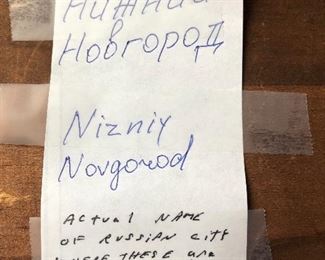 Нижний
Новгород
Nizniy
Novgorod
ACTUAL NAME
OF RUSSIAN CITY
WHERE THESE ARE